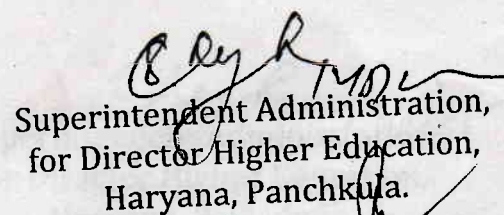 Superintendent Administration,
for Director Higher Education,
Haryana, Panchkula.